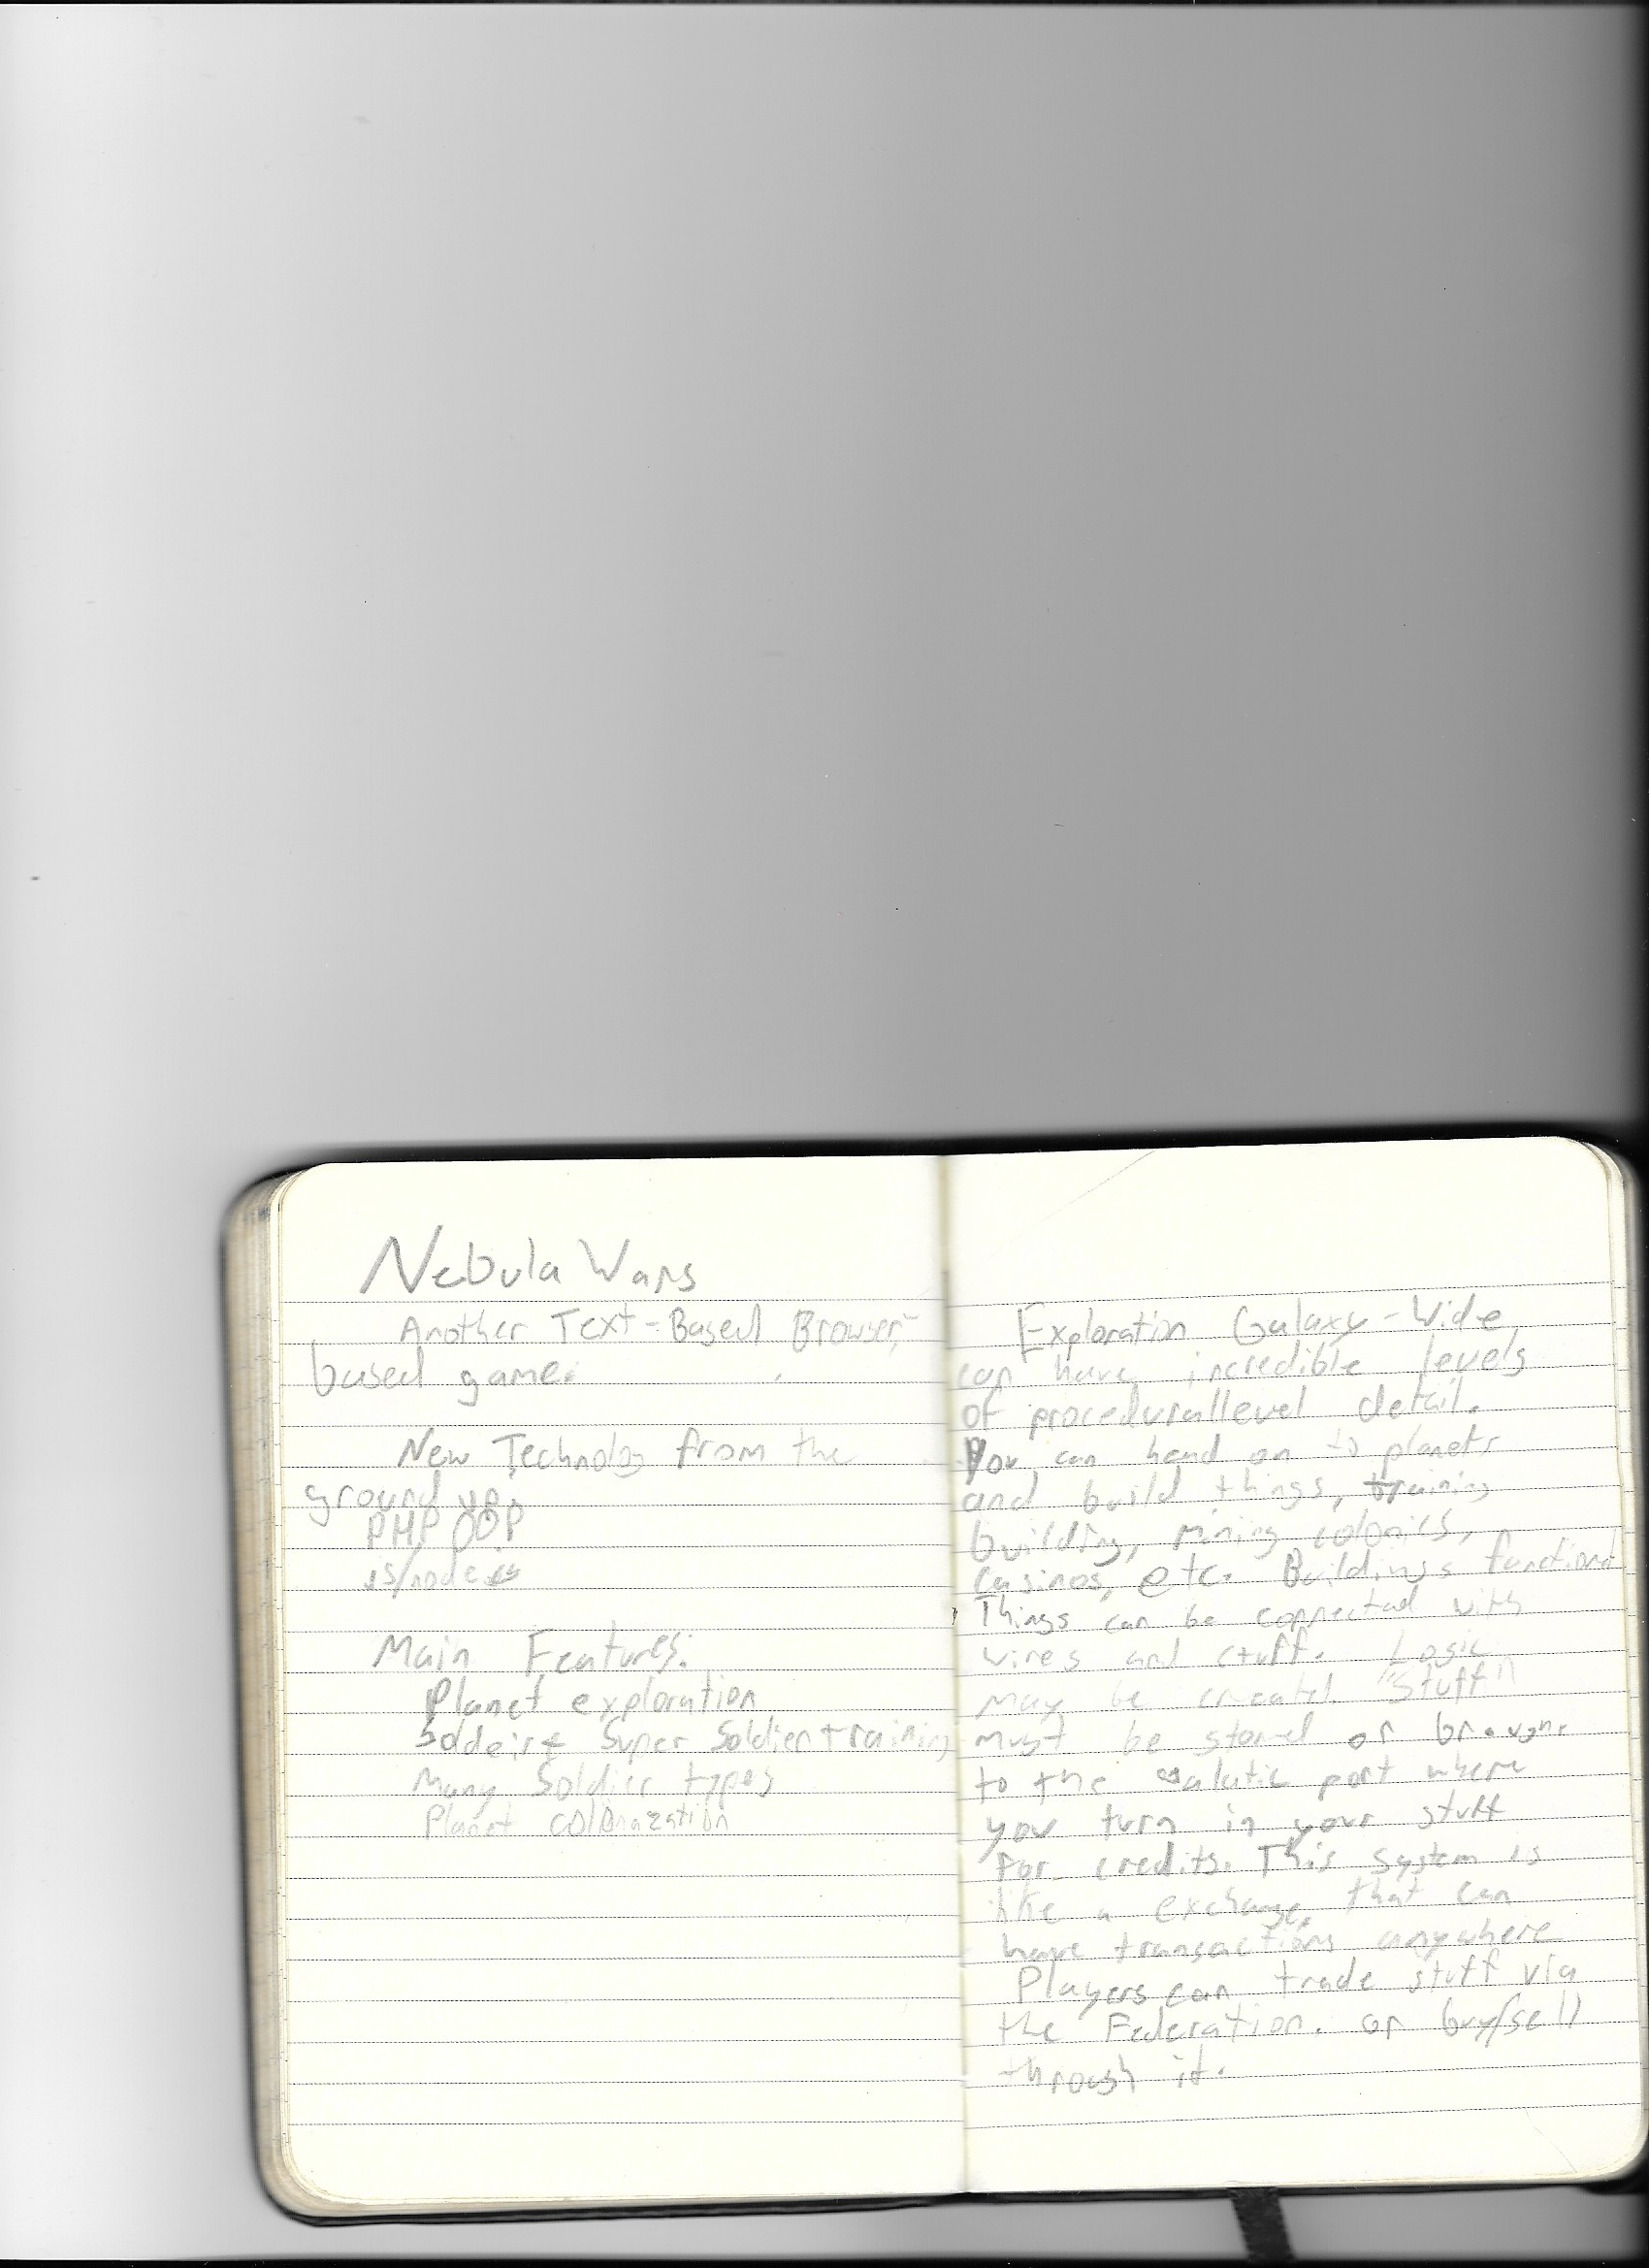 Nebula Wars
Another Text-Based Browser-
based game.
New Technology from the
ground up
PHP OOP
js/node
Main Features:
Planet exploration
Soldeir & Super Soldier training
Many Soldier types
Planet colonazation
Exploration Galaxy-Wide,
can have incredible levels
of procedurallevel detail.
You can hand on to planets
and build things, training
building, mining colonies,
casinos, etc. Buildings function
Things can be connected with
wires and stuff. Logic
may be created. "Stuff"
must be stored or
to the port where
you turn in your stuff
for credits. This system is
like a exchange that can
have transactions anywhere
Players can trade stuff via
the Federation. or buy/sell
through it.